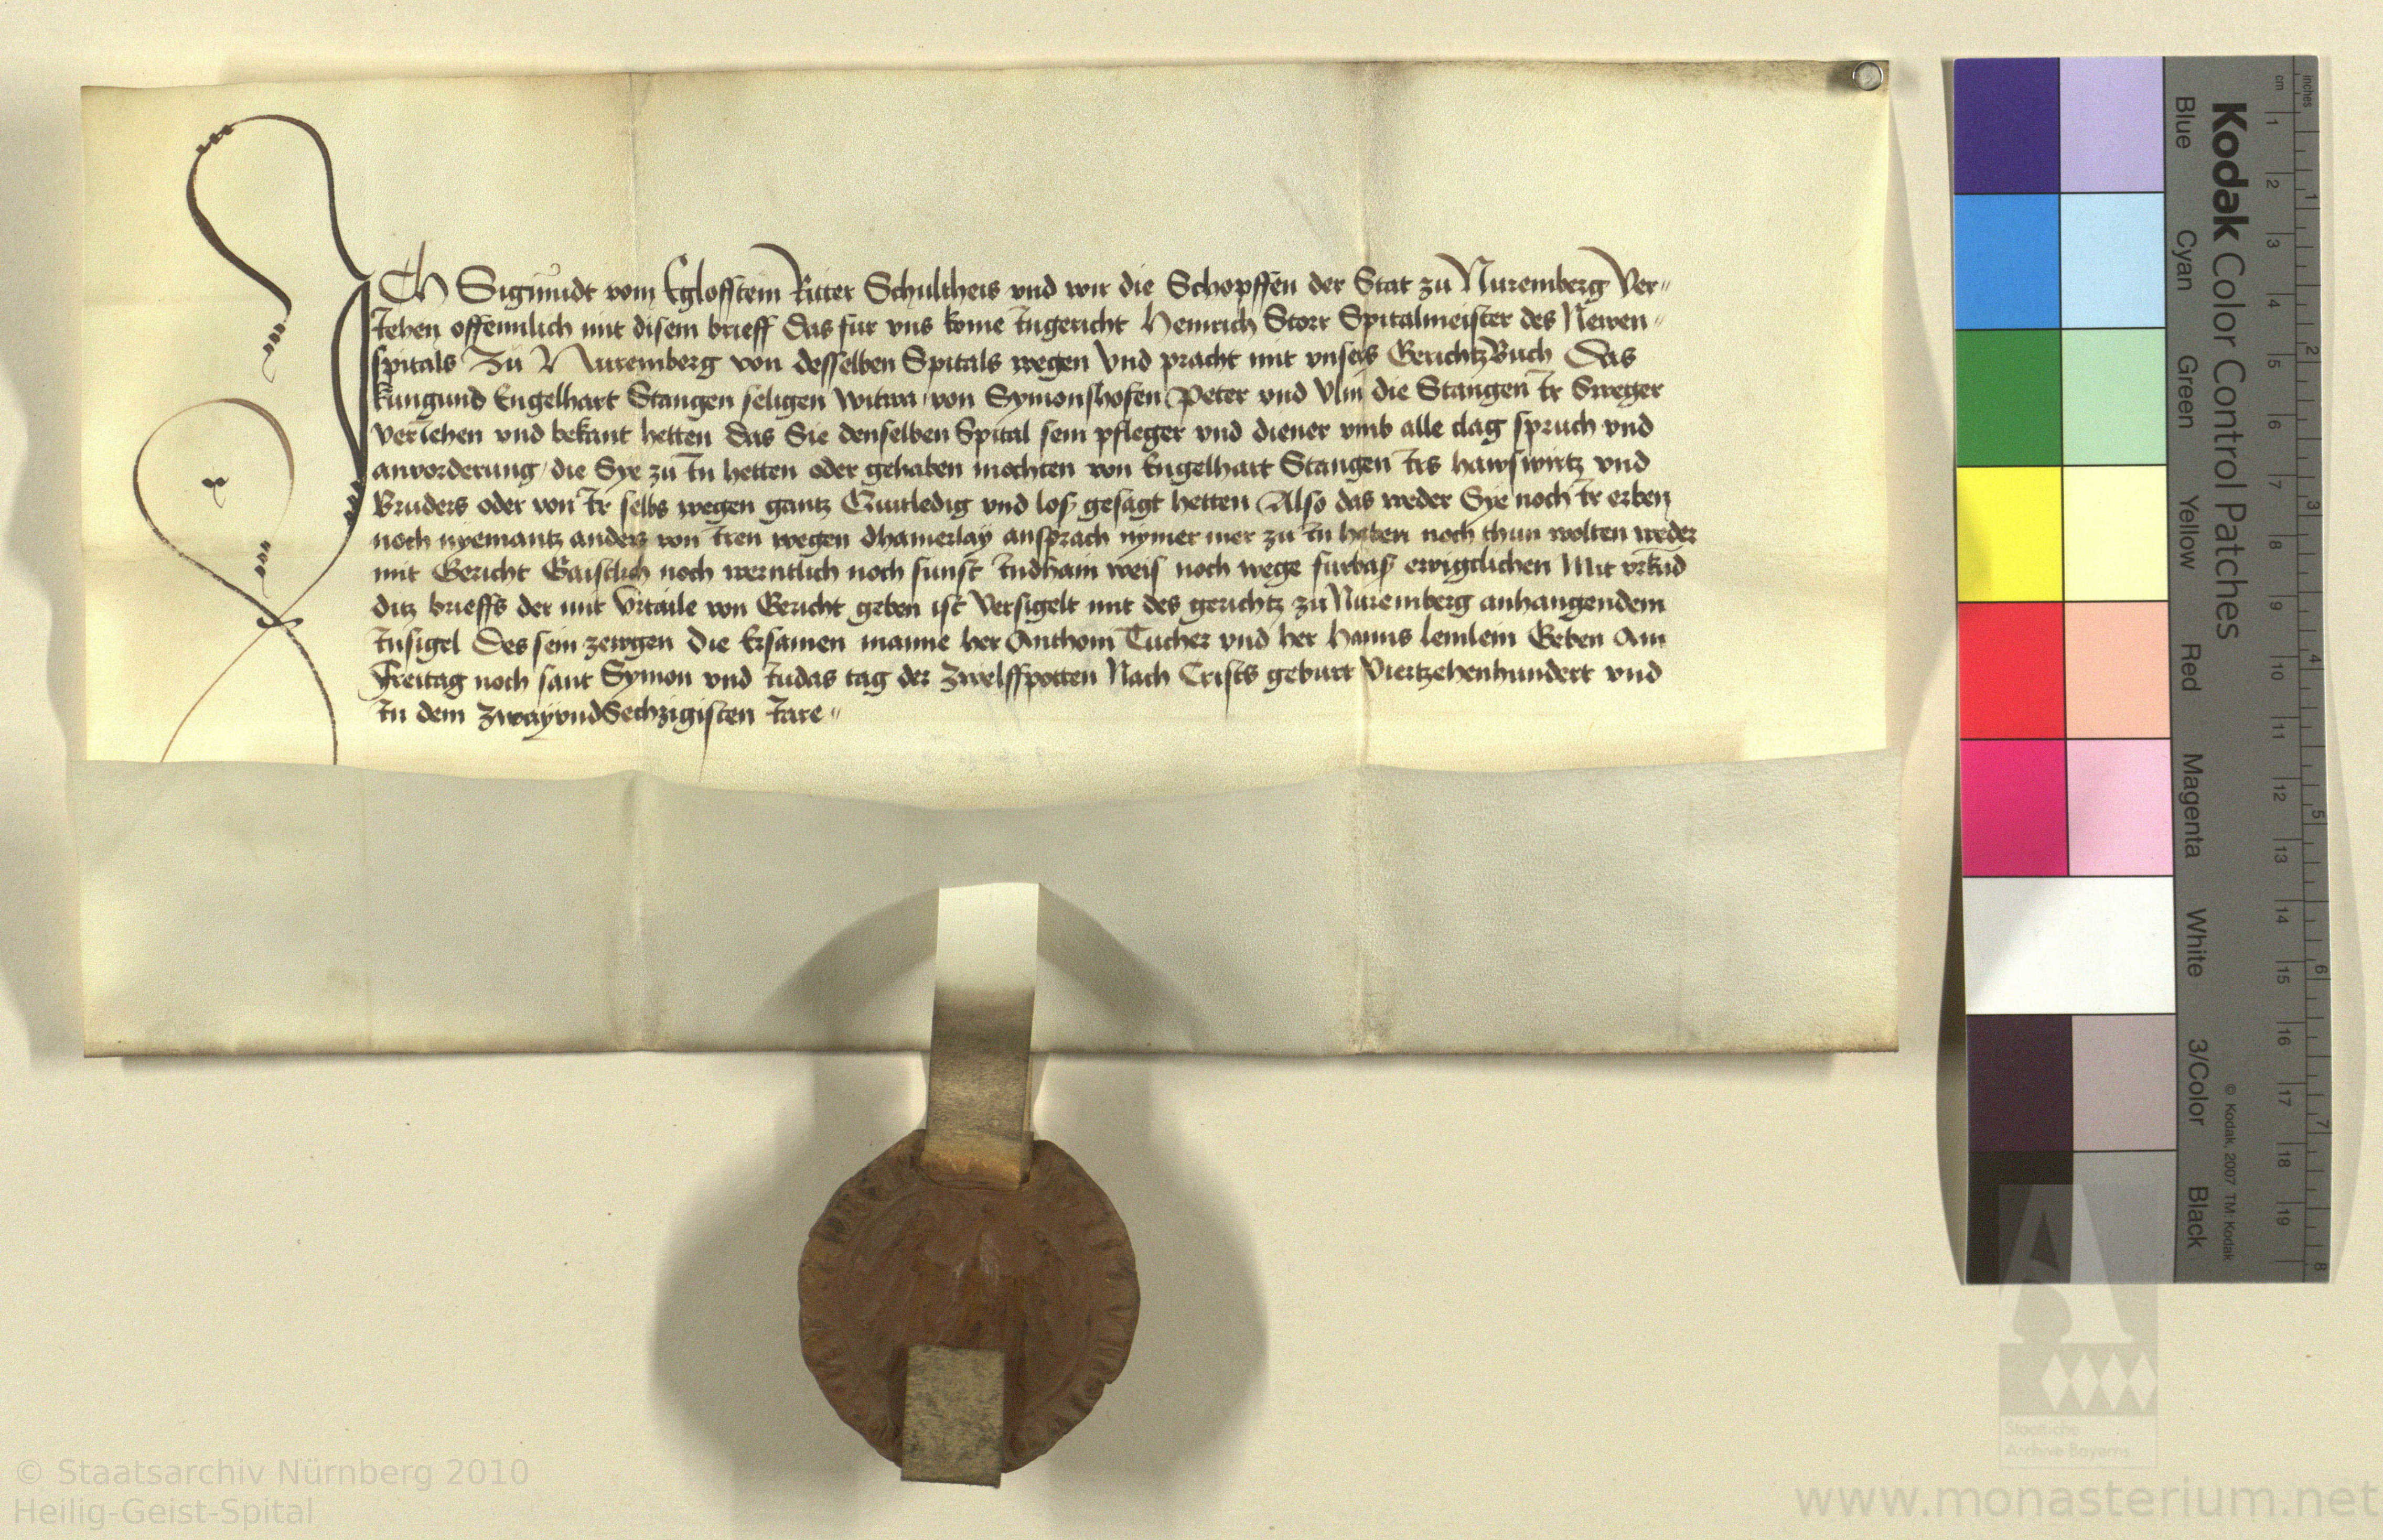 ICH Sigmudt vom Egloffstein Ritter Schultheis vnd wir die Schopffen der Stat zu Nuremberg Ver„
iehen offennlich mit disem brieff Das fur vns kome Ingericht Heinrich Storr Spitalmeister des Newen„
spitals Zu Nuremberg von desselben Spitals wegen Vnd pracht mit vnsers GerichtzBuch Das
kungund Engelhart Stangen seligen witwa von Symonshofen Peter vnd Vlin die Stangen Ir Sweger
veriehen vnd bekant hetten Das Sie denselben Spital sein pfleger vnd diener vmb alle clag spruch vnd
anvorderung / die Sye zu In hetten oder gehaben mochten von Engelhart Stangen Irs hawswirtz vnd
Bruders oder von Ir selbs wegen gantz Quitledig vnd los gesagt hetten Also das weder Sye noch Ir erben
noch nyemantz anders von Iren wegen dhainerlay ansprach nymer mer zu In haben noch thun wolten weder
mit Gericht Gaistlich noch werntlich noch sunst Indhain weis noch wege furbas ewigclichen Mit vrkud
ditz brieffs der mit Vrtaile von Gericht geben ist Versigelt mit des gerichtz zu Nuremberg anhangendem
Insigel Des sein zewgen die Ersamen manne her Anthoni Tucher vnd her Hanns lemlein Geben Am
Freitag noch sant Symon vnd Iudas tag der Zwelffpotten Nach Crists geburt Viertzehenhundert vnd
In dem ZwayvndSechzigisten Iare„
Kodak Color Control Patches
Blue Cyan Green Yellow Red Magenta White 3/Color Black
© Kodak, 2007 TM: Kodak
cm 1 2 3 4 5 6 7 8 9 10 11 12 13 14 15 16 17 18 19
inches 1 2 3 4 5 6 7 8
Staatliche
Archive Bayerns
© Staatsarchiv Nürnberg 2010
Heilig-Geist-Spital
www.monasterium.net